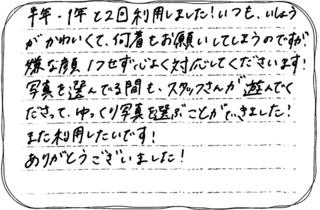 半年・1年と2回利用しました!いつも、いしょう
がかわいくて、何着もお願いしてしまうのですが
嫌な顔1つせず心よく対応してくださいます!
写真を選んでる間も、スタッフさんが遊んでく
ださって、ゆっくり写真を選ぶことができました!
また利用したいです!
ありがとうございました!